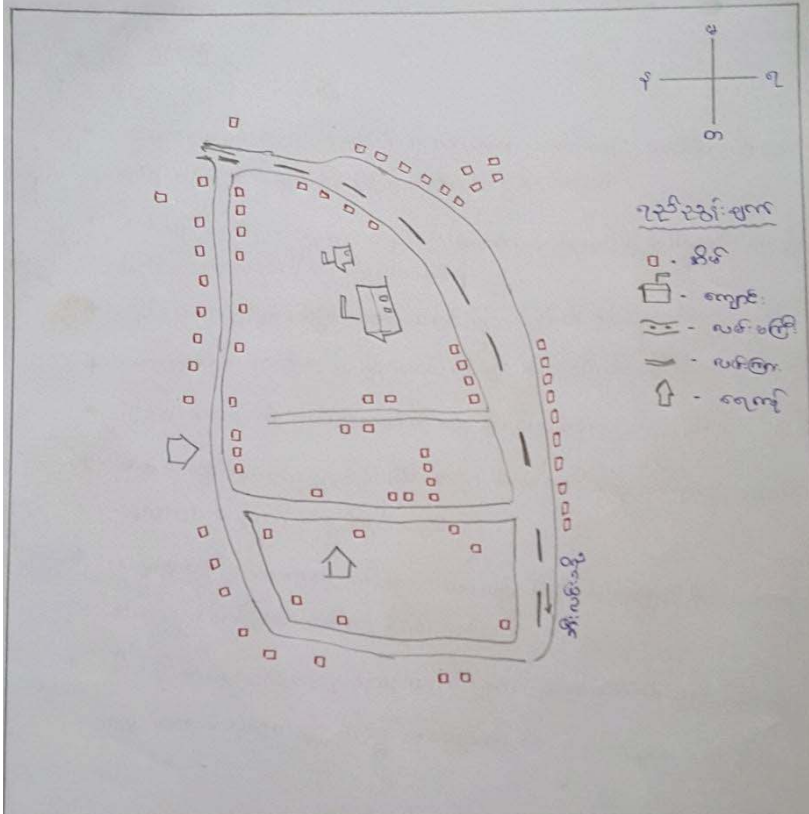 မ
န ရ
တ
ရည်ညွှန်းချက်
- အိမ်
- ကျောင်း
- လမ်းမကြီး
- လမ်းကြား
- ရေကန်